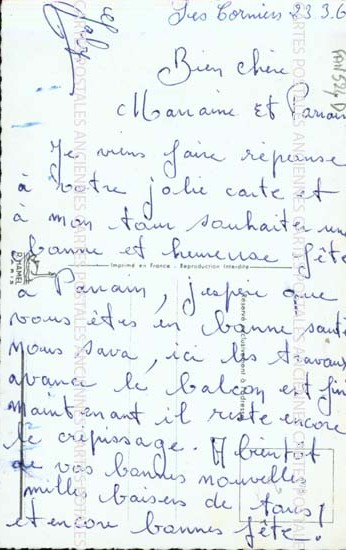 Les Corniers 23.3.6
Bien chère
Marraine et Parrain
Je viens faire réponse
à votre jolie carte et
à mon tour souhaiter une
bonne et heureuse fête
Imprimé en France - Reproduction Interdite
à Parrain, j'espère que
vous êtes en bonne santé
nous sava, ici les travaux
avance le balcon est fini
maintenant il reste encore
le crépissage. A bientot
de vos bonnes nouvelle
mille baisers de tous
et encore bonnes fête!
CARTES POSTALES ANCIENNES
Réservé exclusivement à l'adresse